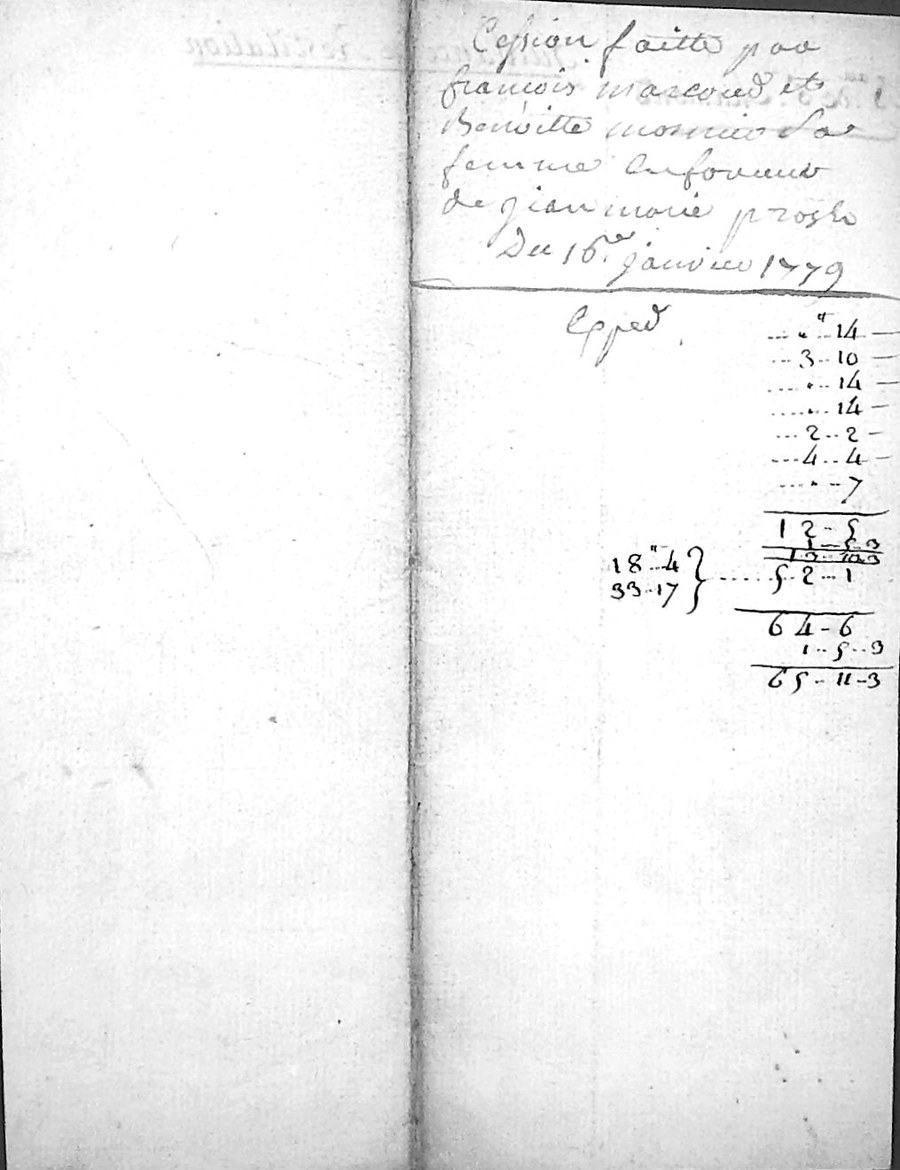 Cession faitte par
françois marcoud et
Benoitte monnier Sa
femme En faveur
de jean marie
Du 16.e janvier 1779
Exped
... " 14 —
... 3 .. 10 —
.... . .. 14 —
.... . .. 14 —
... 2 .. 2 —
... 4 .. 4 —
.... . .. 7
12 - 5
1 - 5 - 3
13 - 10 - 3
18 " 4 } ..... 52 - 1
33 - 17
64 - 6
1 - 5 - 3
65 - 11 - 3